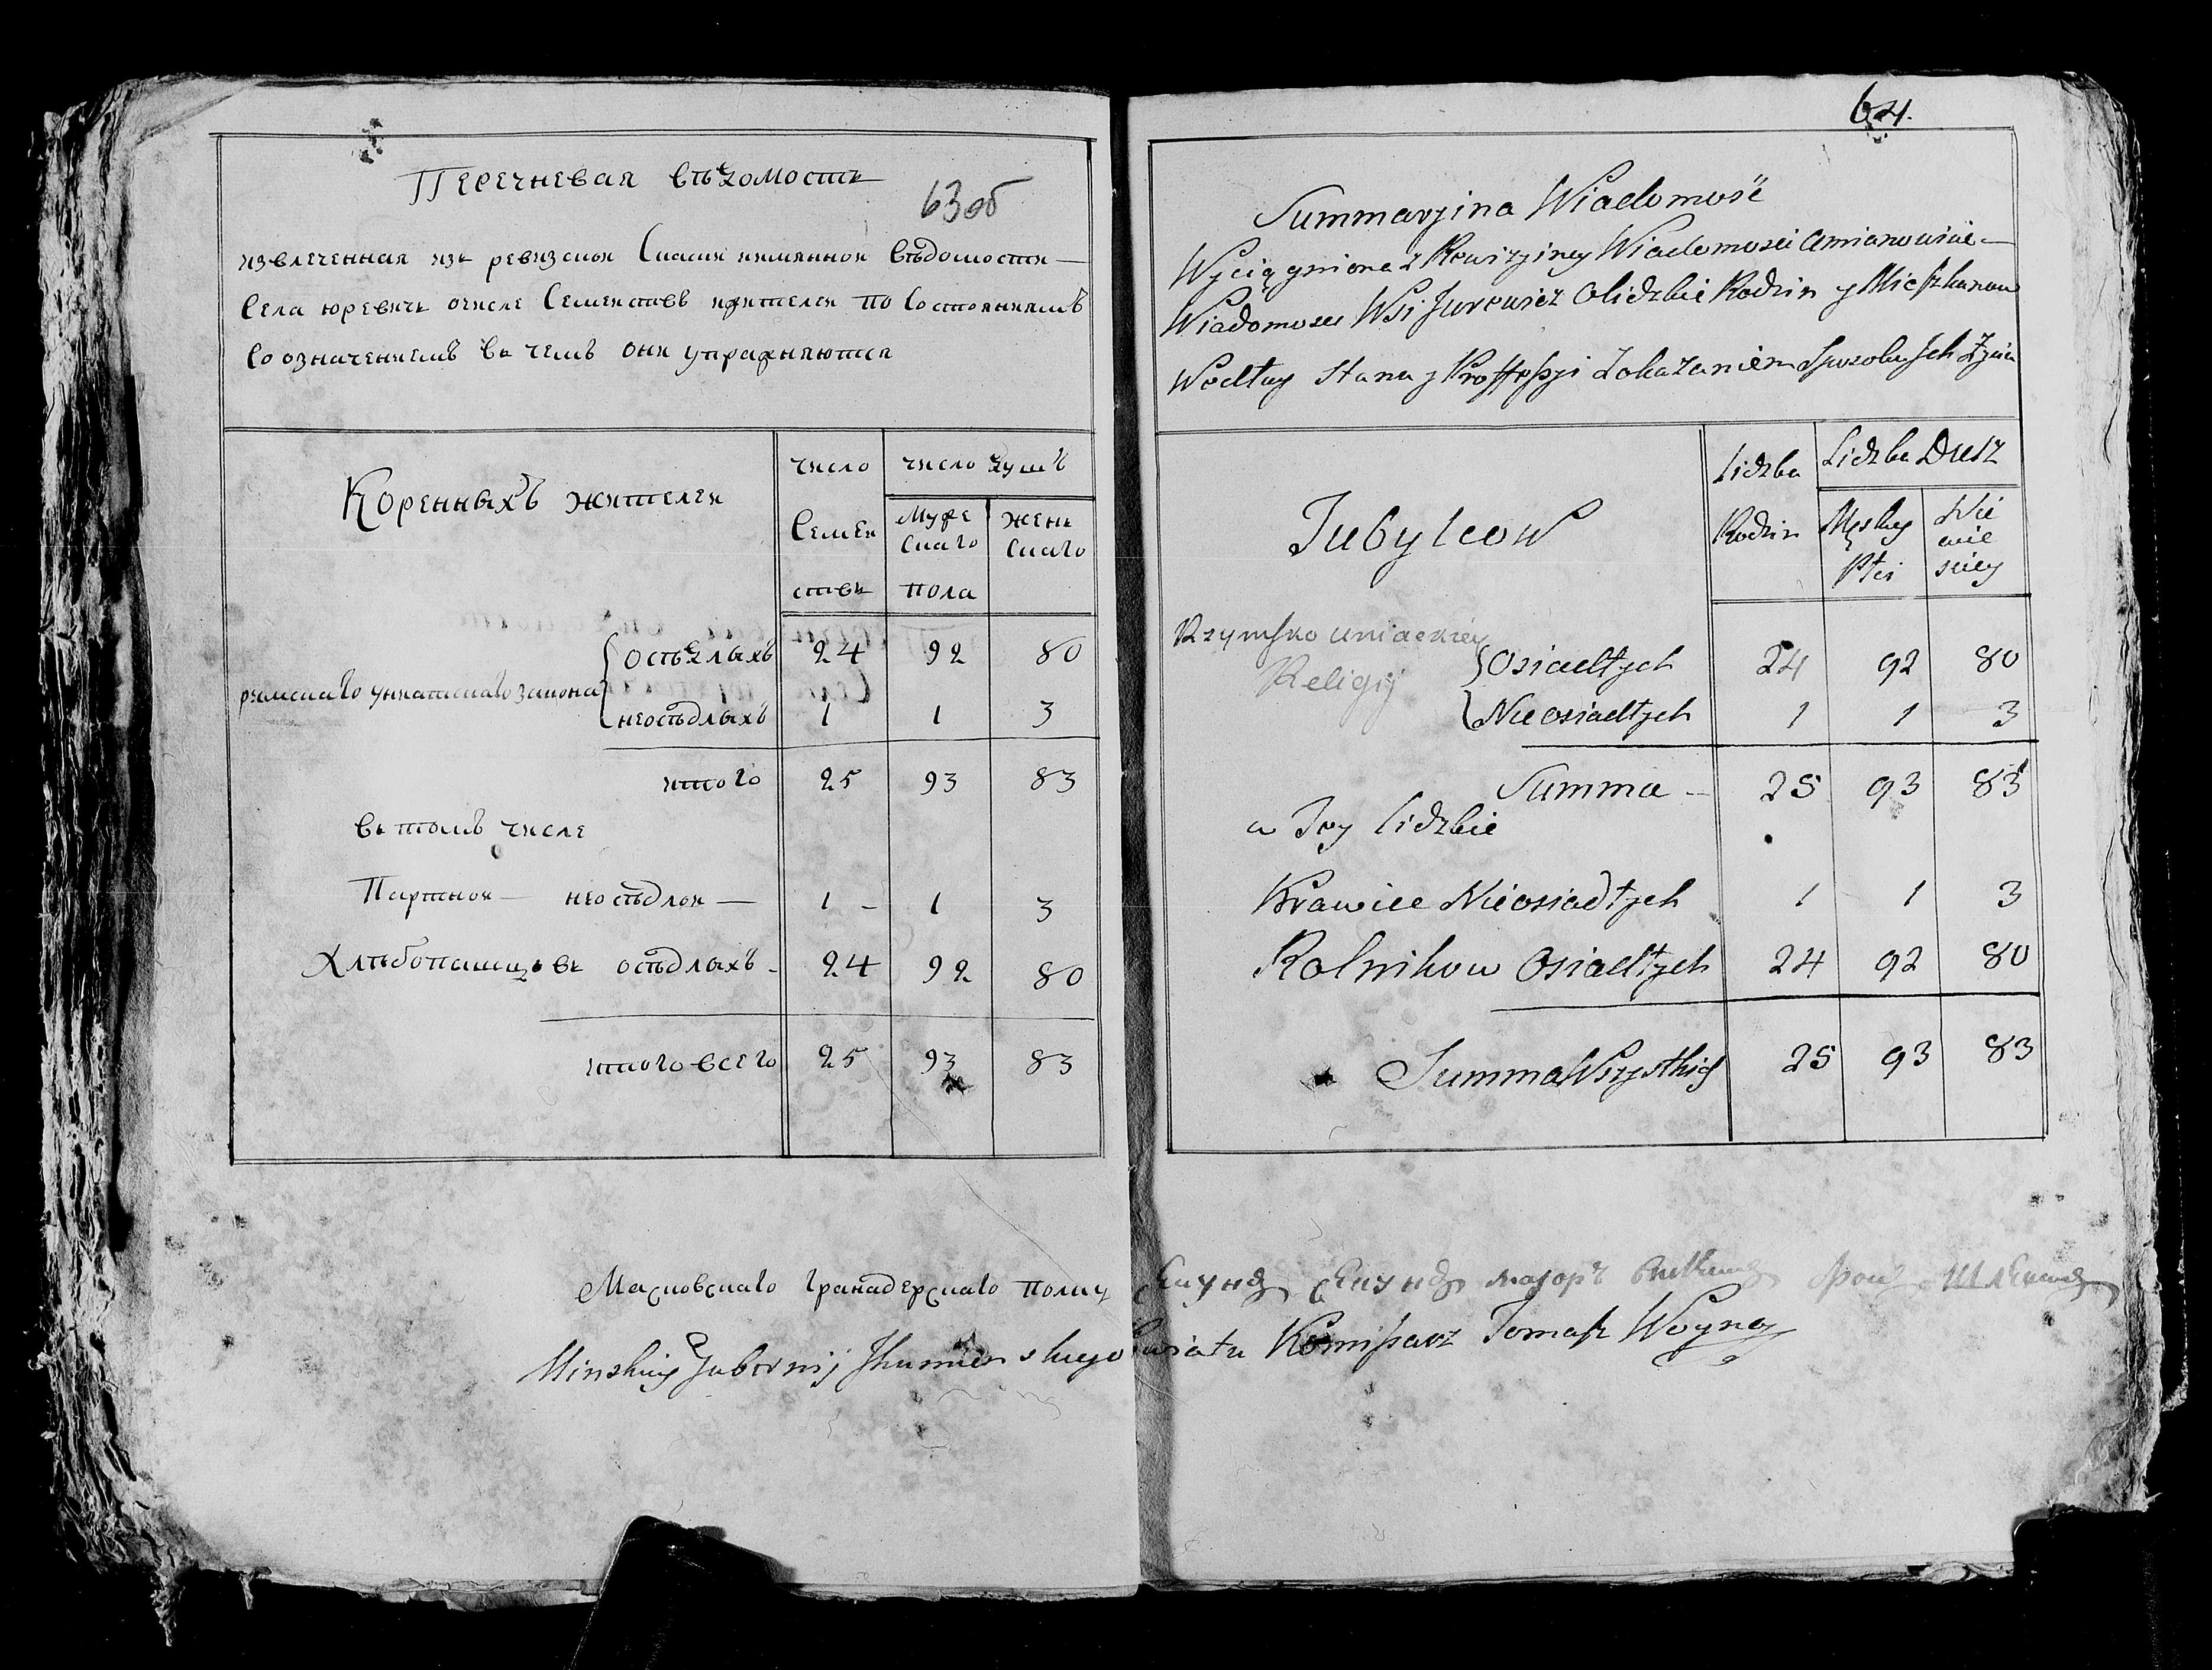 Перечневая вѣдомость
63об
извлеченная изъ ревизской Сказки имянной вѣдомости —
Села юревичь очисле Семействъ жителей по Состояниямъ
Со означениемъ въ чемъ они упражняются
Коренныхъ жителей
число Семействъ
число душъ
Мужескаго пола
женскаго
римскаго униатскаго закона
осѣдлыхъ 24 92 80
неосѣдлыхъ 1 1 3
итого 25 93 83
въ томъ числе
Портной — неосѣдлой — 1 – 1 3
Хлѣбопашцовъ осѣдлыхъ - 24 92 80
итого всего 25 93 83
64.
Summaryina Wiadomość
Wyciągniona z Rewizyiney Wiadomosci
Wiadomosci Wsi Jurewicz o lidzbie Rodzin y Mieszkancow
Wedlug Stanu y Proffessyi Zokazaniem Sposobu Jch Zycia
Tubylcow
Lidzba Rodzin
Lidzba Dusz
Męskiey Płci
Niewiesciey
Rzymsko uniackiey
Religij
Osiadłych 24 92 80
Nieosiadłych 1 1 3
Summa – 25 93 83
w Tey Lidzbie
Krawiec Nieosiadłych 1 1 3
Rolnikow Osiadłych 24 92 80
Summa Wszystkich 25 93 83
Московскаго гранадерскаго полку Секундъ маиоръ фонъ
Minskiey Gubernij Jhumenskiego Powiatu Komissarz Tomasz Woyna